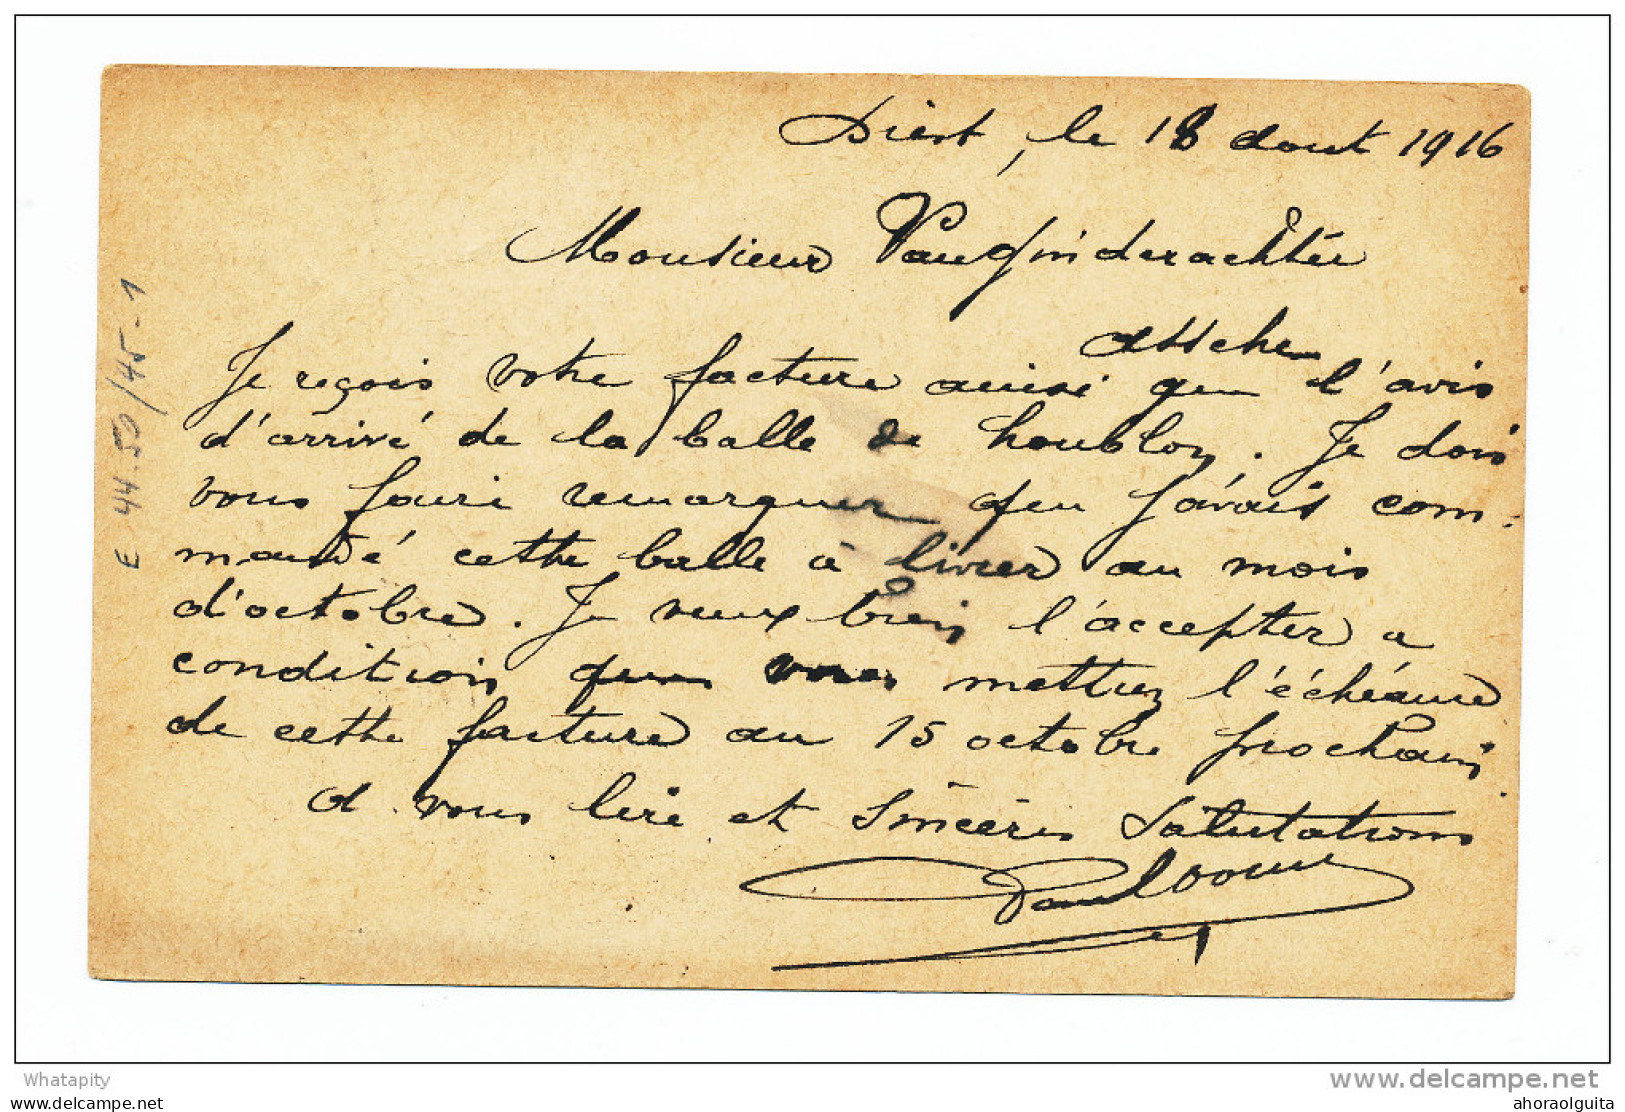 Diest, le 18 aout 1916
Monsieur Vanginderachter
assche
Je reçois votre facture ainsi que l'avis
d'arrivé de la balle de houblon. Je dois
vous faire remarquer que j'avais com-
mandé cette balle à livrer au mois
d'octobre. Je veux bien l'accepter a
condition que vous mettiez l'échéance
de cette facture au 15 octobre prochain
A vous lire et sincères Salutations
E 44.50/45-1
Whatapity
delcampe.com
www.delcampe.net
ahoraolguita